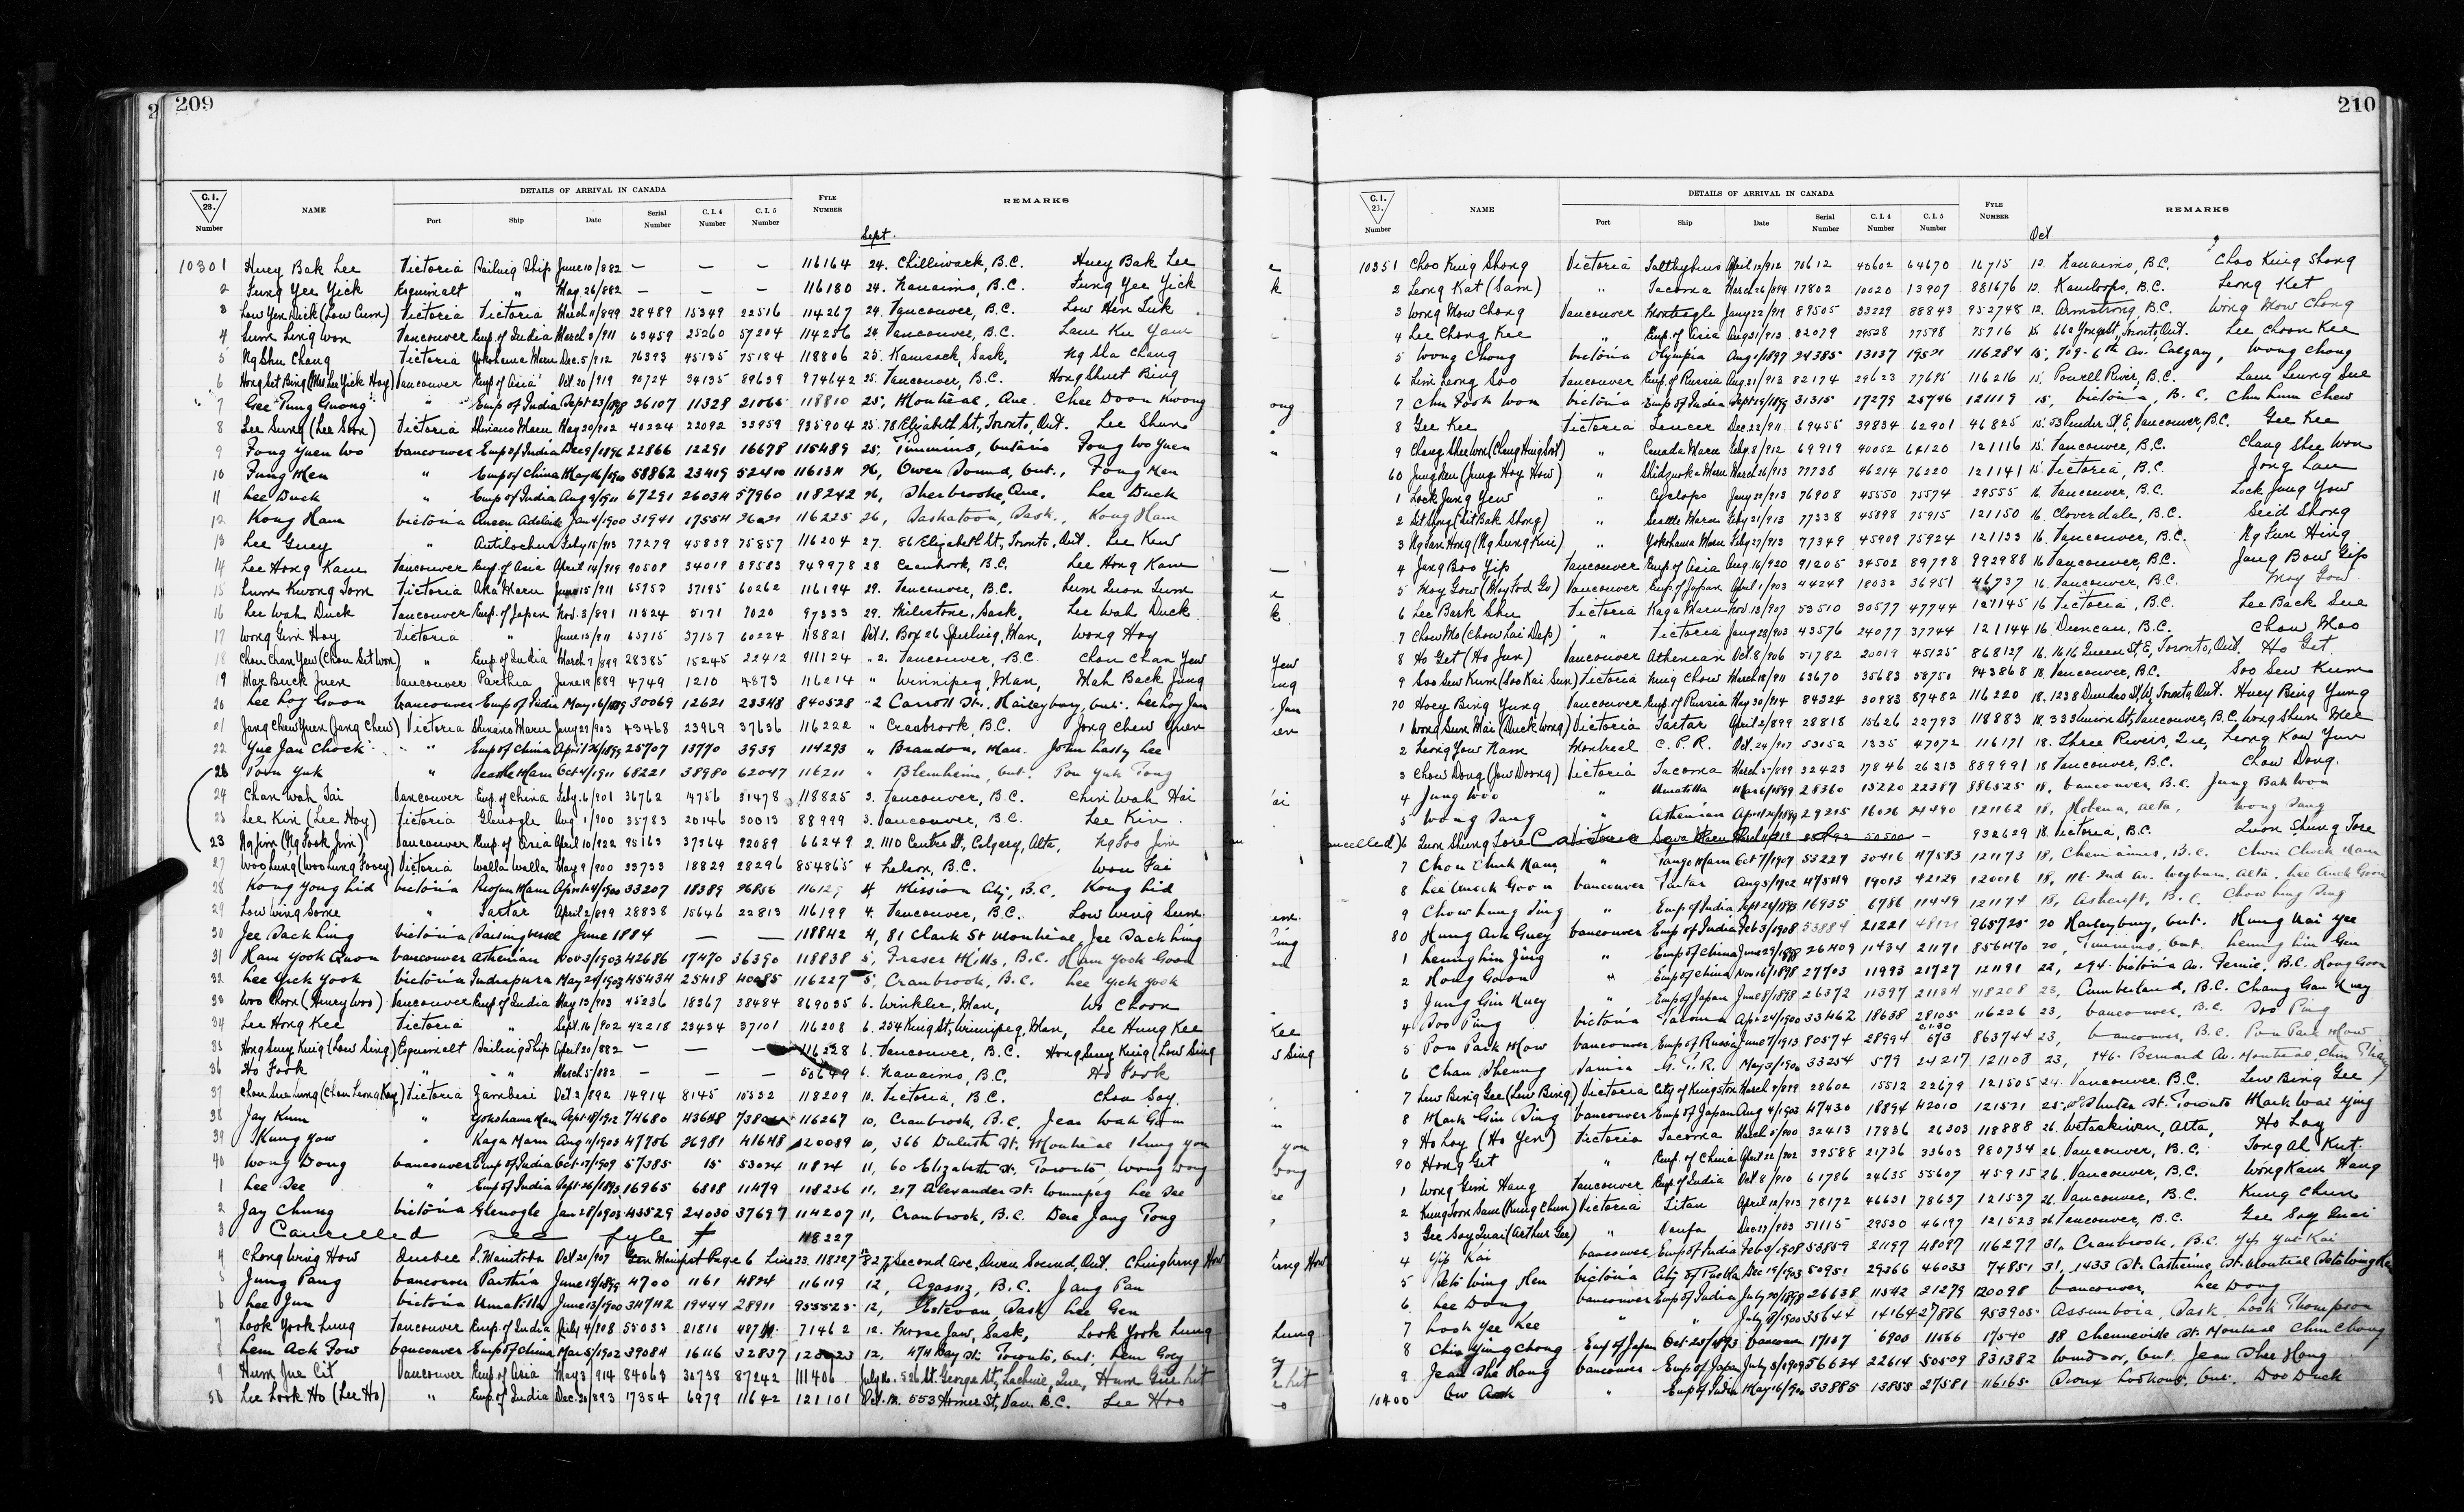 2 209
C.I. 28. Number NAME DETAILS OF ARRIVAL IN CANADA FYLE NUMBER REMARKS
Port Ship Date Serial Number C.I.4 Number C.I.5 Number
Sept.
10301 Huey Bak Lee Victoria Sailing Ship June 10/882 — — — 116164 24. Chilliwack, B.C. Huey Bak Lee
2 Fung Yee Yick Esquimalt " May 26/882 — — — 116180 24. Nanaimo, B.C. Fung Yee Yick
3 Low Yen Duck (Low Cum) Victoria Victoria March 11/899 28489 15349 22516 114267 24. Vancouver, B.C. Low Hen Tuk
4 Lum Ling Won Vancouver Emp. of India March 3/911 63459 25260 57204 114256 24. Vancouver, B.C. Lam Ku Yam
5 Ng Shu Chang Victoria Yokohama Maru Dec. 5/912 76393 45135 75184 118806 25. Kamsack, Sask. Ng Sha Chang
6 Hong Set Bing (Mrs Lee Yick Hoy) Vancouver Emp. of Asia Oct. 20/919 90724 34135 89639 974642 25. Vancouver, B.C. Hong Shuet Bing
7 Gee Tung Guong " Emp of India Sept. 23/898 26107 11329 21065 118810 25, Montreal, Que. Chee Doon Kwong
8 Lee Sung (Lee Soon) Victoria Shinano Maru May 20/902 40224 22092 33959 935904 25. 78 Elizabeth St, Toronto, Ont. Lee Shun
9 Fong Yuen Wo Vancouver Emp of India Dec 9/1896 22866 12291 16678 115489 25, Timmins, Ontario Fong Wo Yuen
10 Fung Men " Emp of China May 16/1910 58862 23419 52410 116131 26, Owen Sound, Ont., Fong Men
11 Lee Duck " Emp of India Aug 2/1911 67291 26034 57960 118242 26, Sherbrooke, Que. Lee Duck
12 Kong Ham Victoria Queen Adelaide Jan 4/1900 31941 17554 26021 116225 26, Saskatoon, Sask., Kong Ham
13 Lee Guey " Antilochus Feby 15/913 77279 45839 75857 116204 27. 86 Elizabeth St, Toronto, Ont. Lee Kew
14 Lee Hong Kam Vancouver Emp. of Asia April 14/919 90508 34019 89583 949978 28 Cranbrook, B.C. Lee Hong Kam
15 Lum Kwong Tom Victoria Aka Maru June 15/911 65753 37195 60262 116194 29. Vancouver, B.C. Lum Quon Tum
16 Lee Wah Duck Vancouver Emp. of Japan Nov. 3/891 11824 5171 7020 97333 29. Milestone, Sask. Lee Wah Duck
17 Wong Gim Hoy Victoria " June 15/911 65715 37157 60224 118821 Oct 1. Box 26 Sperling, Man, Wong Hoy
18 Chou Chan Yew (Chou Sit Won) " Emp. of India March 7/899 28385 15245 22412 911124 " 2. Vancouver, B.C. Chou Chan Yew
19 Mar Buck Juen Vancouver Parthia June 19/889 4749 1210 4873 116214 " Winnipeg, Man, Mah Back Jung
20 Lee Loy Goon Vancouver Emp of India May 16/1899 30069 12621 23348 840528 " 2 Carroll St., Haileybury, Ont. Lee Loy Jan
21 Jang Chew Yuen (Jang Chew) Victoria Shinano Maru Jany 29/903 43468 23969 37636 116222 " Cranbrook, B.C. Jong Chew Yuen
22 Yue Jan Chock " Emp of China April 26/1899 25707 13770 3939 114293 " Brandon, Man. John Lasly Lee
23 Poon Yuk " Seattle Maru Oct 4/1911 68221 38980 62047 116211 " Blenheim, Ont. Pon Yuk Tong
24 Chan Wah Tai Vancouver Emp. of China Feby. 6/901 36762 14756 31478 118825 3. Vancouver, B.C. Chin Wah Hai
25 Lee Kin (Lee Hoy) Victoria Glenogle Aug 1/900 35783 20146 30013 88999 3. Vancouver, B.C. Lee Kin
23 Ng Jim (Ng Fook Jim) Vancouver Emp. of Asia April 10/922 95163 37364 92089 66249 2. 1110 Centre St, Calgary, Alta, Ng Foo Jim
27 Woo Lung (Woo Lung Foocy) Victoria Walla Walla May 9/900 33733 18829 28296 854865 4 Nelson, B.C. Woo Fai
28 Kong Yong Lid Victoria Riojun Maru April 4/1900 33207 18389 26856 11612 4 Mission City, B.C. Kong Lid
29 Low Wing Some " Tartar April 2/899 28838 15646 22813 116199 4. Vancouver, B.C. Low Wing Sum
30 Jee Sack Ling Victoria Sailing Vessel June 1884 — — 118842 4, 81 Clark St Montreal, Jee Sack Ling
31 Ham Yook Quon Vancouver Athenian Nov 3/1903 42686 17470 36390 118838 5, Fraser Mills, B.C. Ham Yook Goon
32 Lee Yick Yook Victoria Indrapura May 21/1903 45434 25418 40085 116227 5, Cranbrook, B.C. Lee Yick Yook
33 Woo Choon (Henry Woo) Vancouver Emp. of India May 13/903 45236 18367 38484 869035 6. Winkler, Man, Wo Choon
34 Lee Hong Kee Victoria " Sept. 16/902 42218 23434 37101 116208 6. 254 King St, Winnipeg, Man, Lee Hung Kee
35 Hong Suey King (Low Sing) Esquimalt Sailing Ship April 20/882 — — — 116228 6. Vancouver, B.C. Hong Suey King (Low Sing
36 Ho Fook " " March 5/882 — — — 50649 6. Nanaimo, B.C. Ho Fook
37 Chou Sue Lung (Chou Leong Kay) Victoria Zambesi Oct. 2/892 14914 8145 10532 118209 10. Victoria, B.C. Chou Soy
38 Jay Kum " Yokohama Maru Sept. 18/1912 74680 43648 116267 10, Cranbrook, B.C. Jean Wah Gim
39 Kung Yow " Kaga Maru Aug 11/1903 47756 26981 41648 120089 10, 366 Duluth St. Montreal Kung You
40 Wong Dong Vancouver Emp of India Oct. 17/1909 57385 15 53024 11824 11, 60 Elizabeth St, Toronto Wong Dong
1 Lee See " Emp of India Sept. 26/1893 16965 6818 11479 118236 11, 217 Alexander St. Winnipeg Lee See
2 Jay Chung Victoria Glenogle Jan 28/1903 43529 24030 37697 114207 11, Cranbrook, B.C. Dere Jang Tong
3 Cancelled see fyle # 118227
4 Chong Wing How Quebec L. Manitoba Oct 21/907 Gen Manifest Page 6 Line 23. 118227 827, Second Ave, Owen Sound, Ont. Ching Wing How
5 Jung Pang Vancouver Parthia June 19/1899 4700 1161 4824 116119 12, Agassiz, B.C. Jang Pan
6 Lee Jun Victoria Umatilla June 13/1900 34742 19444 28911 955525 12, Estevan, Sask Lee Gen
7 Look Yook Lung Vancouver Emp. of India July 4/908 55033 21810 71462 12. Moose Jaw, Sask, Look Yook Lung
8 Lem Ack Fow Vancouver Emp of China Mar 5/1902 39084 16116 32837 12, 474 Bay St. Toronto, Ont; Lem Goey
9 Hum Jue Cit Vancouver Emp. of Asia May 3/914 84063 30738 87242 111406 July 16. 526 St. George St, Lachine, Que, Hum Gue hit
50 Lee Look Ho (Lee Ho) " Emp. of India Dec. 20/893 17354 6979 11642 121101 Oct. 12. 553 Homer St, Van. B.C. Lee Hoo
210
C.I. 28. Number NAME DETAILS OF ARRIVAL IN CANADA FYLE NUMBER REMARKS
Port Ship Date Serial Number C.I.4 Number C.I.5 Number
Oct
10351 Choo King Shong Victoria Talthybius April 12/912 70612 40602 64670 16715 12. Nanaimo, B.C. Choo King Shong
2 Leong Kat (Sam) " Tacoma March 26/894 17802 10020 13907 881676 12. Kamloops, B.C. Leong Ket
3 Wong Mow Chong Vancouver Monteagle Jany 22/919 89505 33229 88843 952748 12. Armstrong, B.C. Wong Mow Chong
4 Lee Chong Kee " Emp. of Asia Aug 31/913 82079 29528 77598 75716 15. 662 Yonge St, Toronto, Ont. Lee Choon Kee
5 Wong Chong Victoria Olympia Aug. 1/1897 24385 13137 19521 116284 15, 709-6th Av. Calgary, Wong Chong
6 Lim Leong Soo Vancouver Emp. of Russia Aug. 21/913 82174 29623 77695 116216 15. Powell River, B.C. Lam Leung Sue
7 Chu Fook Won Victoria Emp of India Sept 19/1899 31315 17279 25746 121119 15, Victoria, B.C. Chu Hum Chew
8 Gee Kee Victoria Lencer Dec. 22/911 69455 39834 62901 46825 15. 53 Pender St, E, Vancouver, B.C. Gee Kee
9 Chang Shee Won " Canada Maru Feby. 8/912 69919 40052 64120 121116 15. Vancouver, B.C. Chang Shee Won
60 Jung Len (Jung Hoy How) " Shidzuoka Maru March 26/913 77738 46214 76220 121141 15. Victoria, B.C. Jong Lan
1 Lock Jung Yew " Cyclops Jany 22/913 76908 45550 75574 29555 16. Vancouver, B.C. Lock Jung Yow
2 Sit Song (Sit Bak Shong) " Seattle Maru Feby 21/913 77338 45898 75915 121150 16. Cloverdale, B.C. Seid Shong
3 Ng Fan Hong (Ng Sung Kui) " Yokohama Maru Feby 27/913 77349 45909 75924 121133 16. Vancouver, B.C. Ng Fun Hing
4 Jang Boo Yip Vancouver Emp. of Asia Aug. 16/920 91205 34502 89798 992988 16 Vancouver, B.C. Jang Bow Yip
5 Moy Gow (Moy Fod Go) Vancouver Emp. of Japan April 1/903 44249 18032 36951 46737 16. Vancouver, B.C. Moy Gow
6 Lee Bark Shu Victoria Kaga Maru Nov. 13/907 53510 30577 47744 121145 16 Victoria, B.C. Lee Back Sue
7 Chow Mo (Chow Lai Dep) " Victoria Jany 28/903 43576 24077 37744 121144 16. Duncan, B.C. Chow Moo
8 Ho Get (Ho Jun) Vancouver Athenian Oct. 8/906 51782 20019 45125 868127 16. 1616 Queen St E, Toronto, Ont. Ho Get
9 Soo Sew Kum (Soo Kai Sun) Victoria Ning Chow March 18/911 63670 35683 58750 943868 18. Vancouver, B.C. Soo Sew Kum
70 Hoey Bing Yung Vancouver Emp. of Russia May 30/914 84324 30983 87482 116220 18. 1238 Dundas St, W, Toronto, Ont. Huey Bing Yung
1 Wong Sun Mai (Duck Wong) Victoria Tartar April 2/899 28818 15626 22793 118883 18. 333 Union St, Vancouver, B.C. Wong Shun Mee
2 Leong Yow Nam Montreal C.P.R. Oct. 24/907 53052 1335 47072 116171 18. Three Rivers, Que, Leong Kow Yun
3 Chow Dong (Jow Doong) Victoria Tacoma March 5/899 32423 17846 26213 889991 18 Vancouver, B.C. Chow Dong
4 Jung Woo " Umatilla Mar 6/1899 28360 15220 22387 886525 18, Vancouver, B.C. Jung Bak Woo
5 Wong Sang " Athenian April 21/1899 29215 16026 24490 121162 18, Alta, Wong Sang
Cancelled) 6 Quon Shung Fore Victoria Sawa Maru March 11/918 50500 — 932629 18. Victoria, B.C. Quon Shung Fore
7 Chou Chuk Nam " Tango Maru Oct 7/1907 53227 30416 47583 121173 18, Chemainus, B.C. Chou Chock Nam
8 Lee Quock Goon Vancouver Tartar Aug 3/1902 47549 19013 42129 120016 18, 2nd Av. Weyburn, Alta. Lee Quock Goon
9 Chow Lung Sing " Emp. of India Sept 26/1893 16935 6786 11449 121174 18, Ashcroft, B.C. Chow Lung Sing
80 Hung Ark Guey Vancouver Emp. of India Feb 3/1908 53884 21221 48121 965725 20 Haileybury, Ont. Hung Nai Yee
1 Leung Lim Jing " Emp of China June 29/1898 26409 11434 21171 856470 20, Timmins, Ont. Leung Lim Gen
2 Hong Goon " Emp of China Nov 16/1898 27703 11993 21727 121191 22, 294 Victoria Av. Fernie, B.C. Hong Goon
3 Jung Gin Kuey " Emp of Japan June 8/1898 26372 11397 21134 118208 23, Cumberland, B.C. Chang Gan Kuey
4 Soo Ping Victoria Tacoma Apr 24/1900 33462 18638 28105 116226 23, Vancouver, B.C. Soo Ping
5 Pon Park Mow Vancouver Emp. of Russia June 7/1913 80574 28994 C.I.30 673 863744 23, Vancouver, B.C. Pon Pak Mow
6 Chan Sheung Sarnia G.T.R. May 3/1900 33254 579 24217 121108 23, 146 Bernard Av. Montreal, Chin Shang
7 Lew Bing Gee (Lew Bing) Victoria City of Kingston March 9/899 28602 15512 22679 121505 24. Vancouver, B.C. Lew Bing Gee
8 Mark Gin Sing Vancouver Emp of Japan Aug 4/1903 47430 18894 42010 121521 25, Shuter St. Toronto Mark Wai Ying
9 Ho Loy (Ho Yen) Victoria Tacoma March 5/900 32413 17836 26203 118888 26. Wetaskiwin, Alta, Ho Loy
90 Hong Get " Emp. of China April 22/902 39588 21736 33603 980734 26. Vancouver, B.C. Tong Al Kut
1 Wong Gim Hang Vancouver Emp. of India Oct 8/910 61786 24635 55607 45915 26. Vancouver, B.C. Wong Kam Hang
2 Kung Soon Sam (Kung Chun) Victoria Titan April 12/913 78172 46631 78637 121537 26. Vancouver, B.C. Kung Chun
3 Gee Soy Quai (Arthur Gee) " Yanfa Dec. 13/903 51115 29530 46197 121523 26 Vancouver, B.C. Gee Soy Guai
4 Yip Kai Vancouver Emp of India Feb 3/1908 53859 21197 48097 116277 31, Cranbrook, B.C. Yip Yue Kai
5 Seto Wing Ken Victoria City of Puebla Dec 19/1903 50951 29366 46033 74851 31, 1433 St. Catherine St. Montreal Seto Wing Ken
6 Lee Dong Vancouver Emp of India July 20/1898 26638 11542 21279 120098 Vancouver, Lee Dong
7 Look Yee Kee " " July 8/1900 35644 14164 27886 953905 Assiniboia, Sask Look Thompson
8 Chin Ying Chong Emp of Japan Oct. 23/1893 Vancouver 17107 6900 11566 17540 88 Chenneville St. Montreal Chin Chong
9 Jean She Hang Vancouver Emp of Japan July 3/1909 56624 22614 50509 831382 Windsor, Ont. Jean Shee Hong
10400 Ow Ark " Emp of India May 16/900 33885 13855 27581 116165 Sioux Lookout, Ont. Doo Duck